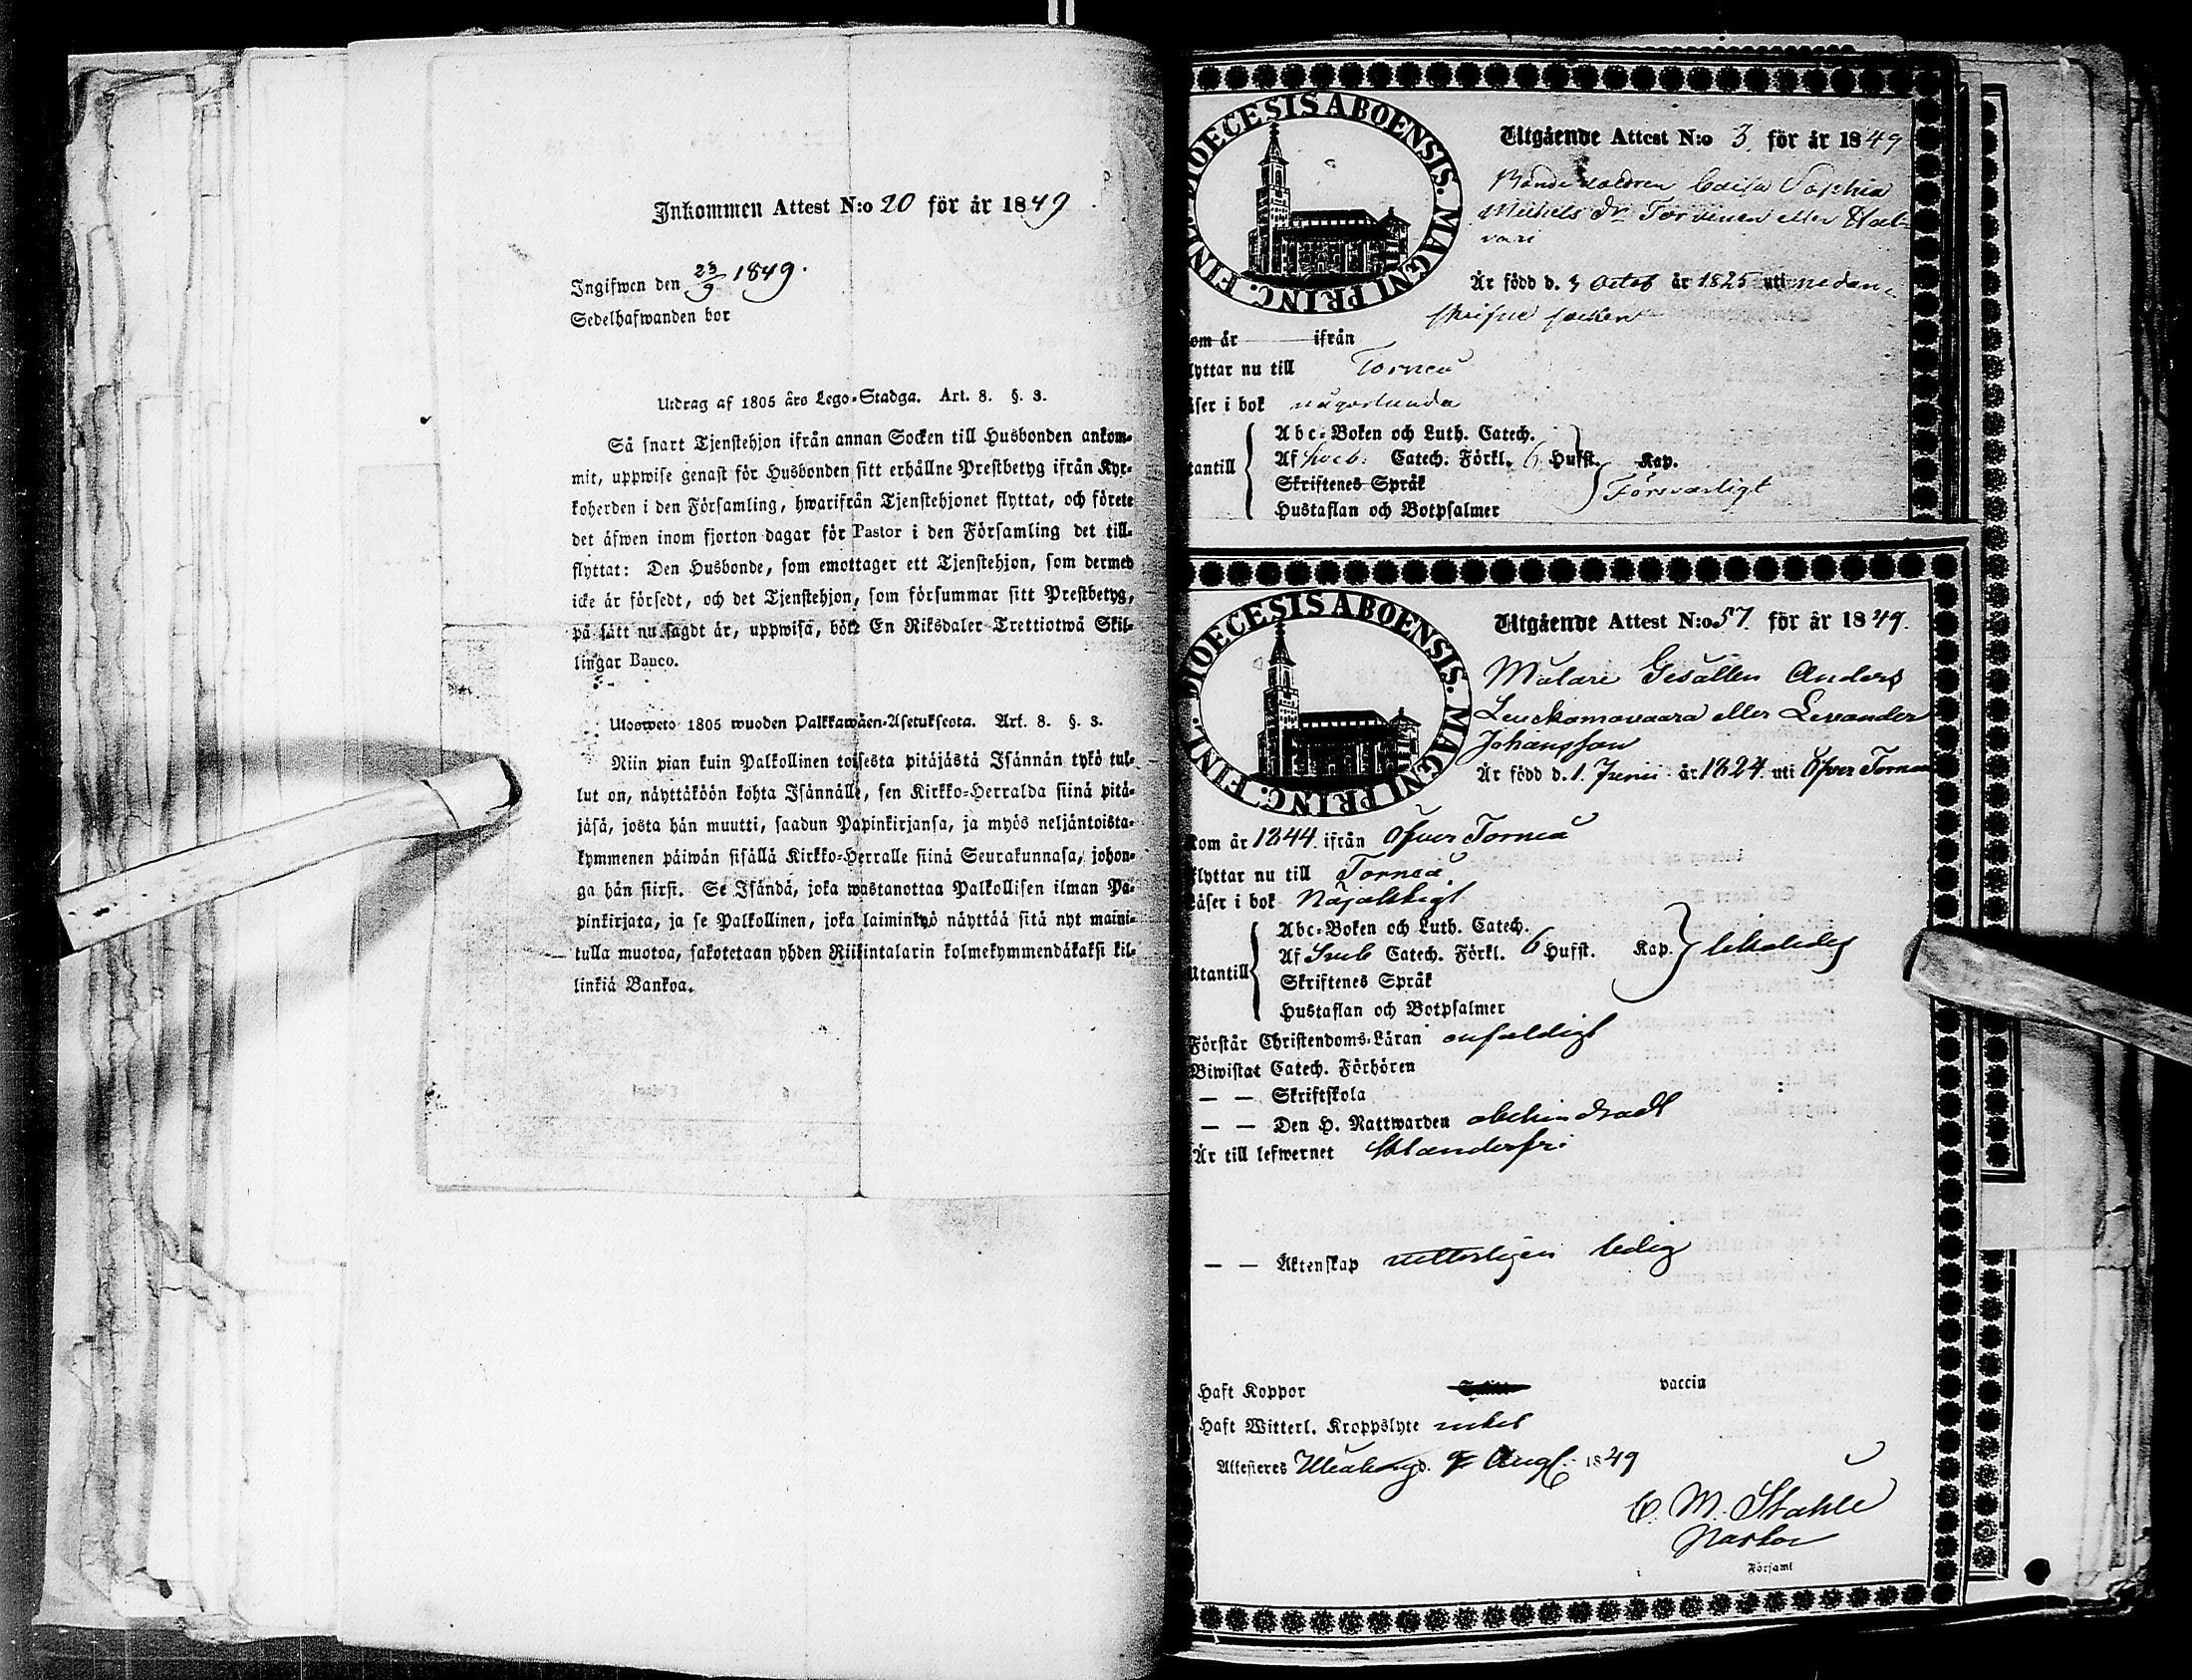 Inkommen Attest N:o 20 för år 1849
Ingifwen den 23/9 1849.
Sedelhafwanden bor
Utdrag af 1805 års Lego-Stadga. Art. 8. §. 3.
Så snart Tjenstehjon ifrån annan Socken till Husbonden ankom-
mit, uppwise genast för Husbonden sitt erhållne Prestbetyg ifrån Kyr-
koherden i den Församling, hwarifrån Tjenstehjonet flyttat, och förete
det äfwen inom fjorton dagar för Pastor i den Församling det till-
flyttat: Den Husbonde, som emottager ett Tjenstehjon, som dermed
icke är försedt, och det Tjenstehjon, som försummar sitt Prestbetyg,
på sätt nu sagdt är, uppwisa, böte En Riksdaler Trettiotwå Skil-
lingar Banco.
Ulosweto 1805 wuoden Palkkawäen-Asetuksesta. Art. 8. §. 3.
Niin pian kuin Palkollinen toisesta pitäjästä Isännän tykö tul-
lut on, näyttäköön kohta Isännälle, sen Kirkko-Herralda siinä pitä-
jäsä, josta hän muutti, saadun Papinkirjansa, ja myös neljäntoista-
kymmenen päiwän sisällä Kirkko-Herralle siinä Seurakunnasa, johon-
ga hän siirst. Se Isändä, joka wastanottaa Palkollisen ilman Pa-
pinkirjata, ja se Palkollinen, joka laiminlyö näyttää sitä nyt maini-
tulla muotoa, sakotetaan yhden Riikintalarin kolmekymmendäkaksi kil-
linkiä Bankoa.
DIOECESIS ABOENSIS. MAGNI PRINC. FINL.
Utgående Attest N:o 3. för år 1849
Bondedottren Caisa Sophia
Michels Dr Torvinen eller Hal-
vari
Är född d. 3 Octob år 1825 uti nedan-
skrifne socken
om år ifrån
lyttar nu till Torneå
äser i bok någorlunda
tantill
Abc-Boken och Luth. Catech.
Af Sveb. Catech. Förkl. 6 Hufst. Kap.
Skriftenes Språk
Försvarligt
Hustaflan och Botpsalmer
DIOECESIS ABOENSIS. MAGNI PRINC. FINL.
Utgående Attest N:o 57. för år 1849.
Målare Gesällen Anders
Leuckamovaara eller Levander
Johansson
Är född d. 1. Junii år 1824. uti Öfver Torneå
kom år 1844. ifrån Öfver Torneå
flyttar nu till Torneå
Läser i bok Nöjaktigt
Utantill
Abc-Boken och Luth. Catech.
Af Sveb Catech. Förkl. 6 Hufst. Kap.
Skriftenes Språk
Hustaflan och Botpsalmer
Förstår Christendoms-Läran enfaldigt
Biwistat Catech. Förhören
— — Skriftskola
— — Den H. Nattwarden obehindradt
Är till lefwernet Klanderfri
— — Äktenskap vetterligen ledig
Haft Koppor vaccin
Haft Witterl. Kroppslyte intet
Attesteres Uleåborg d. 9 Aug. 1849
C. M. Stahle
Pastor
Församl